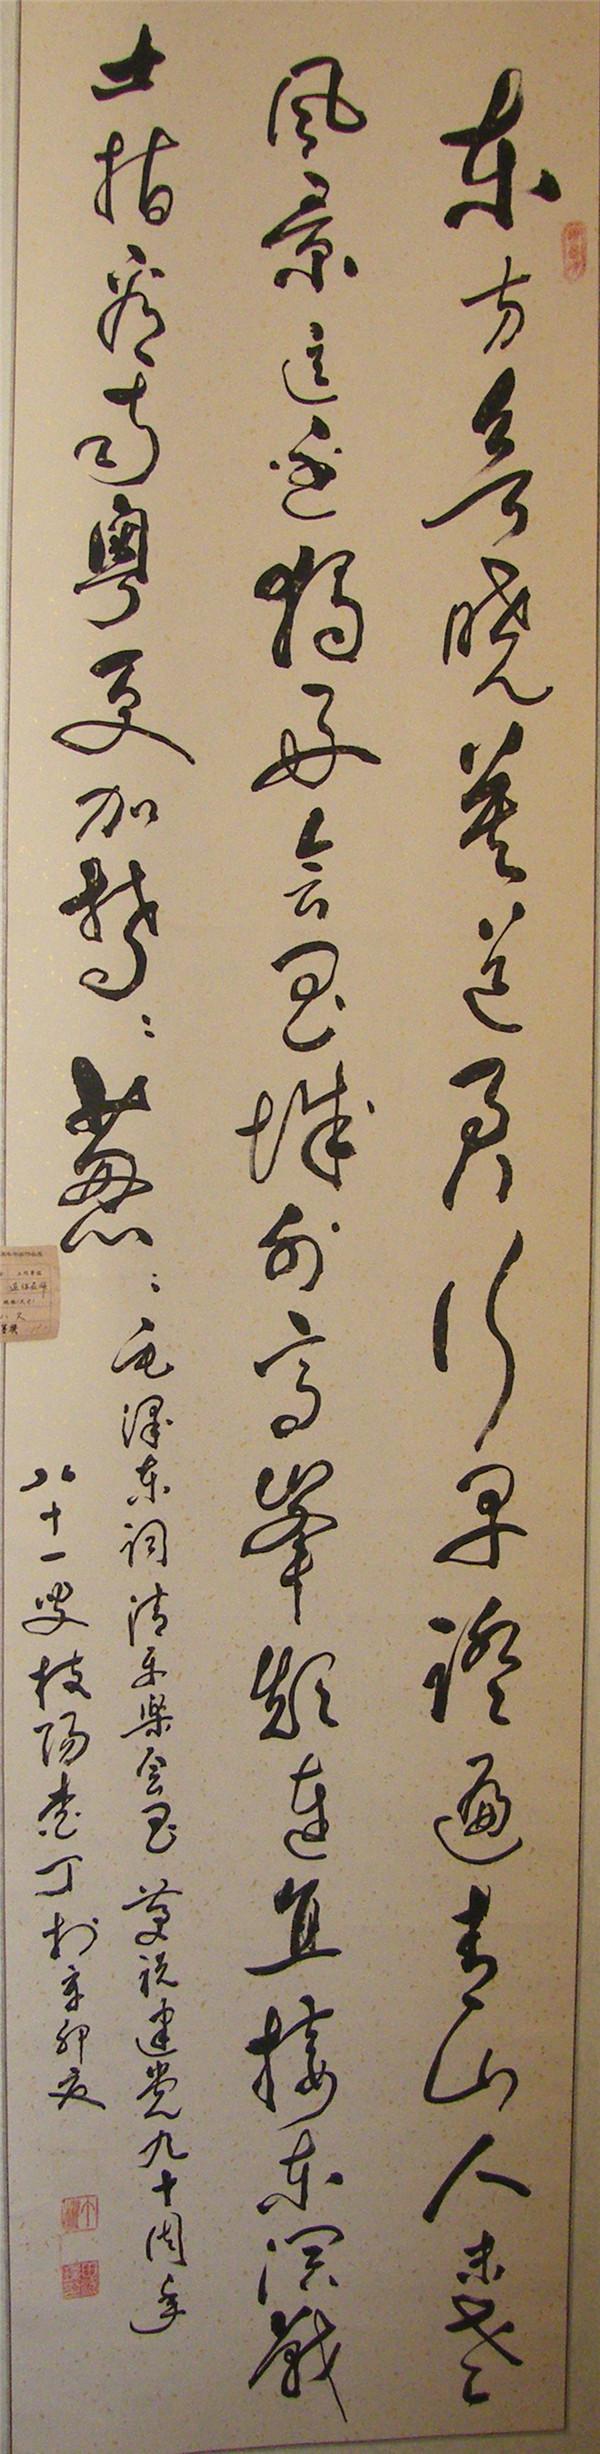 东方欲晓莫道君行早踏遍青山人未老
风景這边独好会昌城外高峯颠连直接东溟战
士指看南粤更加郁郁葱葱 毛泽东词清平樂会昌 庆祝建党九十周年
八十一叟枝阳丁於辛卯夏